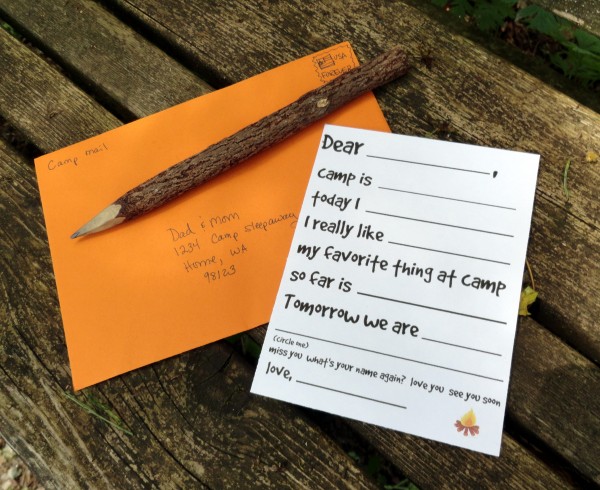 Camp mail
USA
FOREVER
Dad & Mom
1234 Camp sleepaway
Home, WA
98123
Dear ____________,
Camp is ____________
today I ____________
I really like ____________
my favorite thing at camp
so far is ____________
Tomorrow we are ____________
____________
(circle one)
miss you what's your name again? love you see you soon
love, ____________